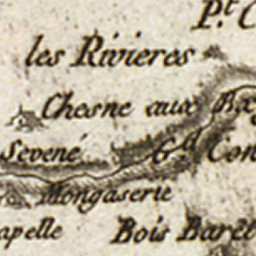 P.t C
les Rivieres
Chesne aux Bx
Sevené
G.d Con
Mongaserie
apelle
Bois Baret